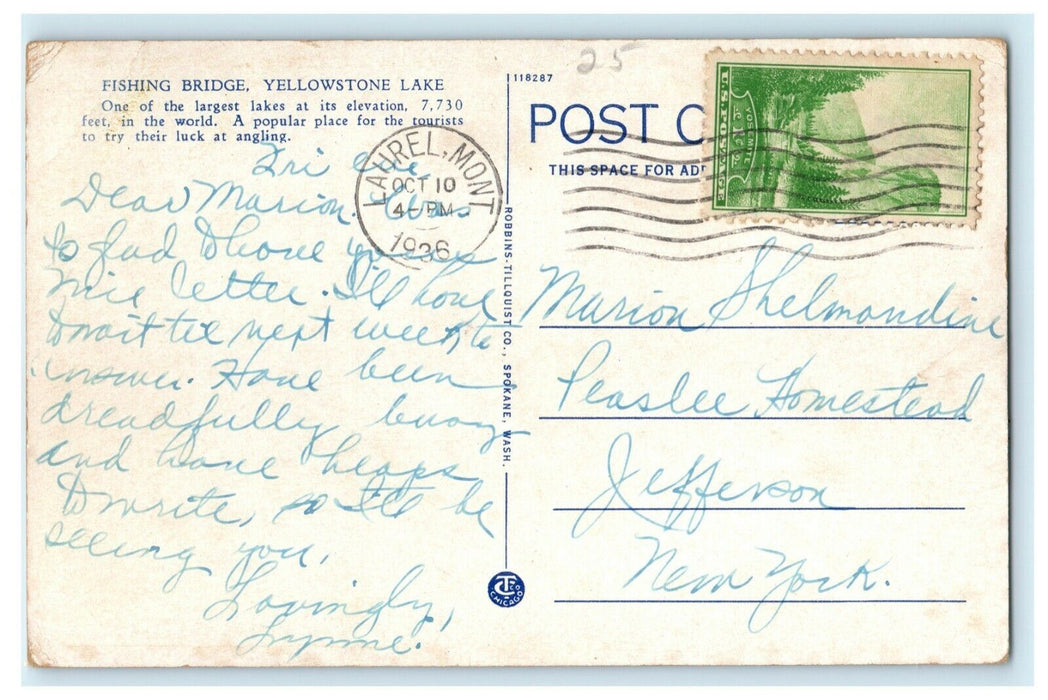 FISHING BRIDGE, YELLOWSTONE LAKE
One of the largest lakes at its elevation, 7,730
feet, in the world. A popular place for the tourists
to try their luck at angling.
Fri eve
Dear Marion. Was
so glad to have your
nice letter. I'll have
to wait til next week, to
answer. Have been
dreadfully busy
and have heaps
to write, so I'll be
seeing you,
Lovingly,
Lynne.
LAUREL, MONT
OCT 10
4-PM
1936
118287
ROBBINS-TILLQUIST CO., SPOKANE, WASH.
CTCO
CHICAGO
25
POST C
THIS SPACE FOR ADD
U.S. POSTAGE
YOSEMITE
EL CAPITAN
1c
Marion Shelmandine
Peaslee Homestead
Jefferson
New York.